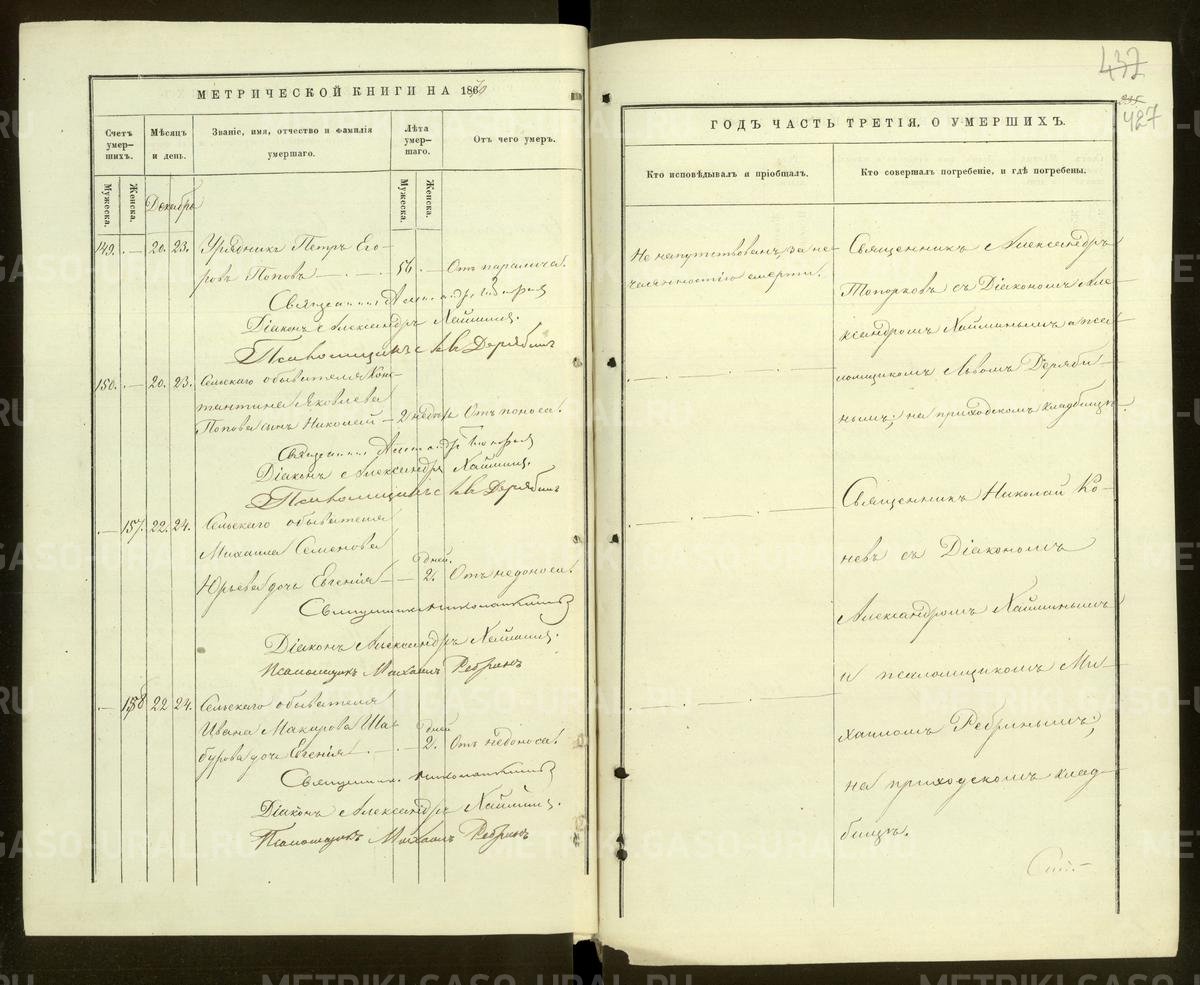 МЕТРИЧЕСКОЙ КНИГИ НА 1870
Счетъ умер-шихъ.
Мѣсяцъ и день.
Званіе, имя, отчество и фамилія умершаго.
Лѣта умер-шаго.
Отъ чего умеръ.
Мужеска.
Женска.
Декабрь
Мужеска.
Женска.
149. — 20. 23. Урядникъ Петръ Его-
ровъ Поповъ — 56. — Отъ паралича.
Діаконъ Александръ Хаминъ.
Псаломщикъ Левъ Дерябинъ
150. — 20. 23. Сельскаго обывателя Конс-
тантина Яковлева
Попова сынъ Николай — 2 недѣли Отъ поноса.
Діаконъ Александръ Хаминъ.
Псаломщикъ Левъ Дерябинъ
— 157. 22. 24. Сельскаго обывателя
Михаила Семенова
Юрьева дочь Евгенія — — 2. дней Отъ недоноса.
Священникъ Николай Коневъ
Діаконъ Александръ Хаминъ.
Псаломщикъ Михаилъ Ребринъ
— 158 22 24. Сельскаго обывателя
Ивана Макарова Ша-
бурова дочь Евгенія — 2. дней Отъ недоноса.
Священникъ Николай Коневъ
Діаконъ Александръ Хаминъ.
Псаломщикъ Михаилъ Ребринъ
437
427
ГОДЪ ЧАСТЬ ТРЕТІЯ, О УМЕРШИХЪ.
Кто исповѣдывалъ и пріобщалъ.
Кто совершалъ погребеніе, и гдѣ погребены.
Не напутствованъ, за не-
чаянностію смерти.
Священникъ Александръ
Топорковъ съ Діакономъ Але-
ксандромъ Хаминымъ и пса-
ломщикомъ Львомъ Деряби-
нымъ; на приходскомъ кладбищѣ.
Священникъ Николай Ко-
невъ съ Діакономъ
Александромъ Хаминымъ
и псаломщикомъ Ми-
хаиломъ Ребринымъ;
на приходскомъ клад-
бищѣ.
METRIKI.GASO-URAL.RU